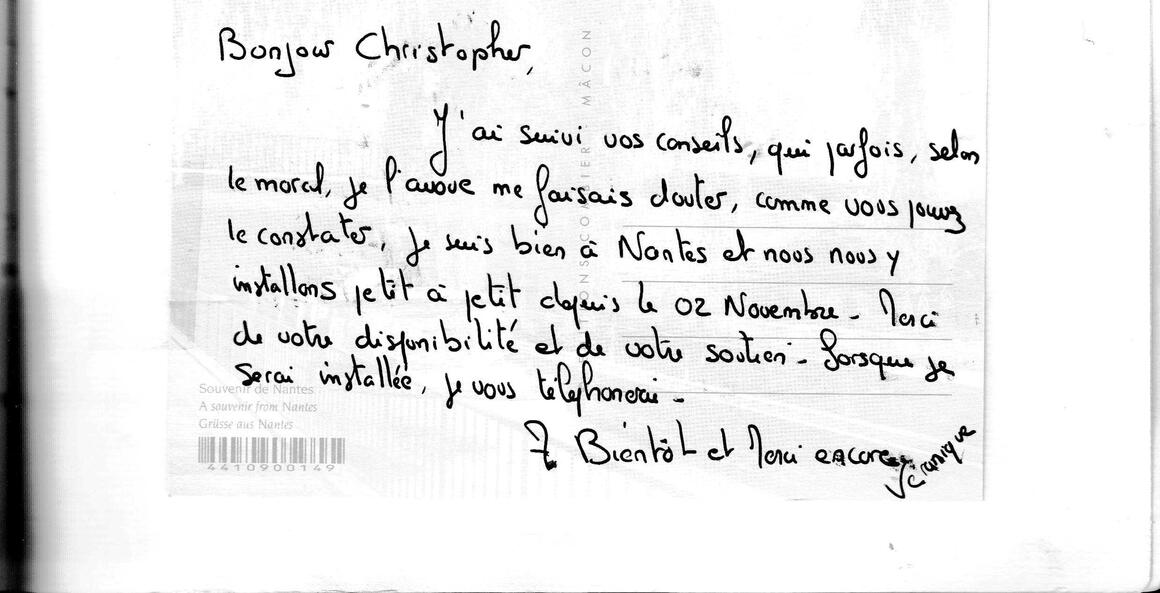 Bonjour Christopher,
J'ai suivi vos conseils, qui parfois, selon
le moral, je l'avoue me faisais douter, comme vous pouvez
le constater, je suis bien à Nantes et nous nous y
installons petit à petit depuis le 02 Novembre. Merci
de votre disponibilité et de votre soutien. Lorsque je
serai installée, je vous téléphonerai.
A Bientôt et Merci encore
MÂCON
Souvenir de Nantes
A souvenir from Nantes
Grüsse aus Nantes
4410900149